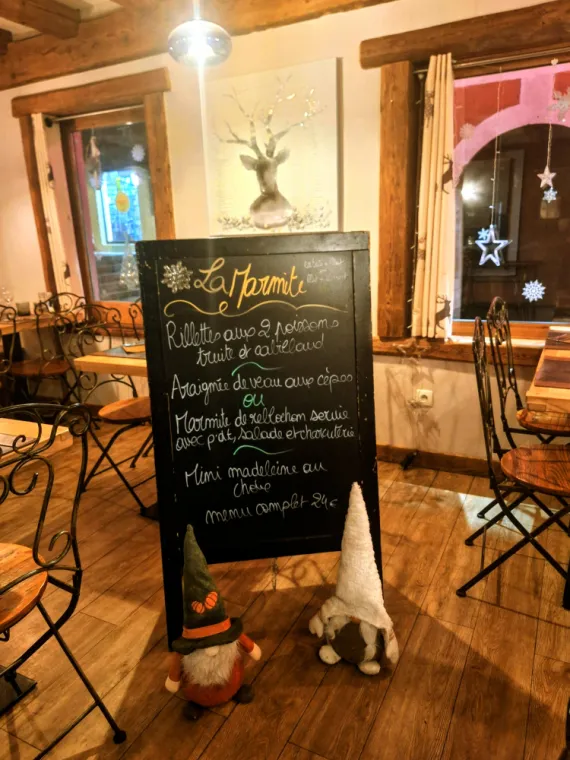 La Marmite
Rillettes aux 2 poissons
truite et cabillaud
Araignée de veau aux cépes
OU
Marmite de reblochon servie
avec pdt, salade et charcuterie
Mini madeleine au
menu complet 24€